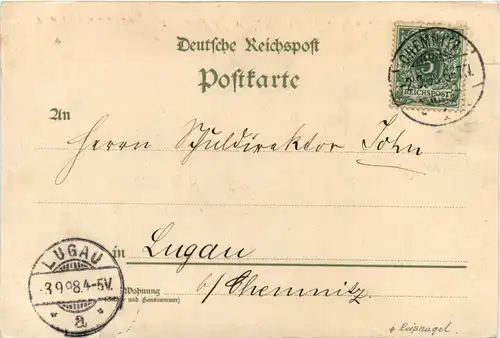 Deutsche Reichspost
Postkarte
An
Herrn Schuldirektor John,
in Lugau
Wohnung
(Straße und Hausnummer)
b/Chemnitz.
CHEMNITZ
REICHSPOST
LUGAU
3.9.98.4-5V.
a